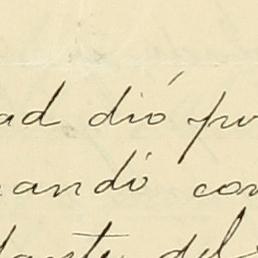 ad dió pu
andó con
tante del